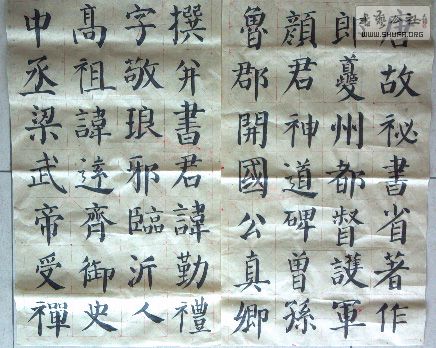 唐故祕書省著作
郎夔州都督護軍
顏君神道碑曾孫
魯郡開國公真卿
撰并書君諱勤禮
字敬琅邪臨沂人
高祖諱逺齊御史
中丞梁武帝受禪
WWW.SHUFA.ORG